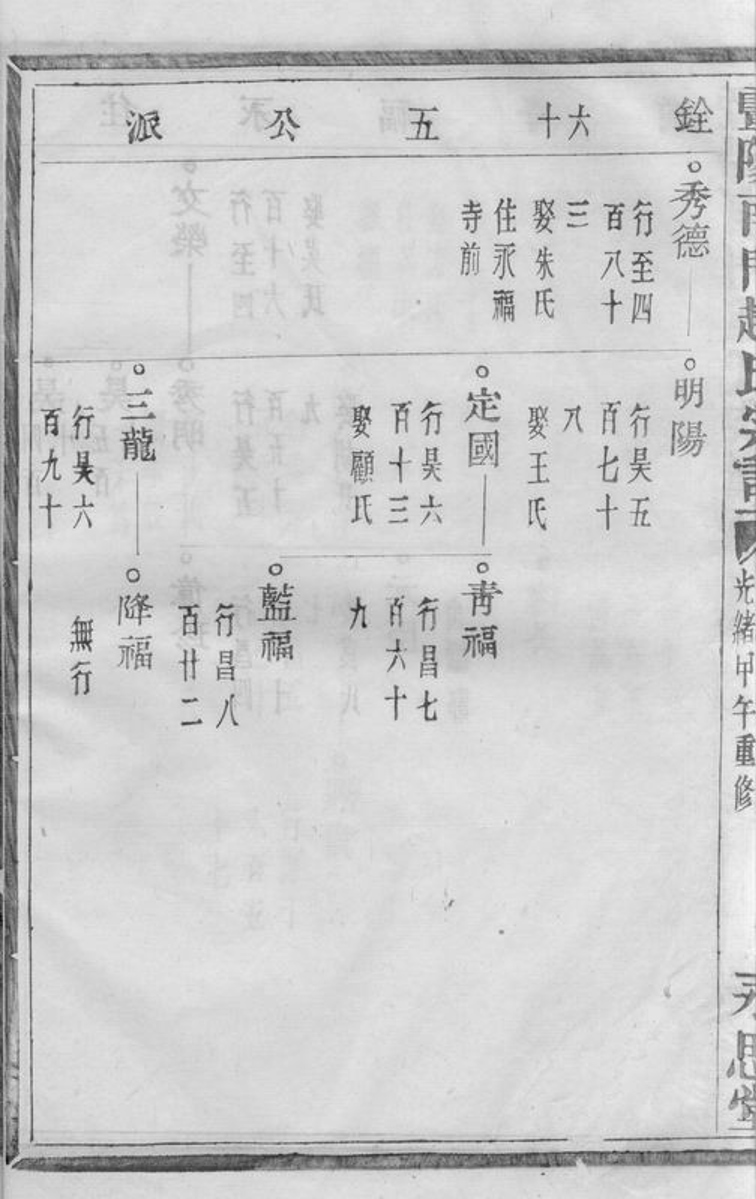 銓六十五公派
秀德
行至四
百八十
三
娶朱氏
住永福
寺前
明陽
行昊五
百七十
八
娶王氏
定國
行昊六
百十三
娶顧氏
三龍
行昊六
百九十
青福
行昌七
百六十
九
藍福
行昌八
百廿二
降福
無行
光緒甲午重修
永思堂